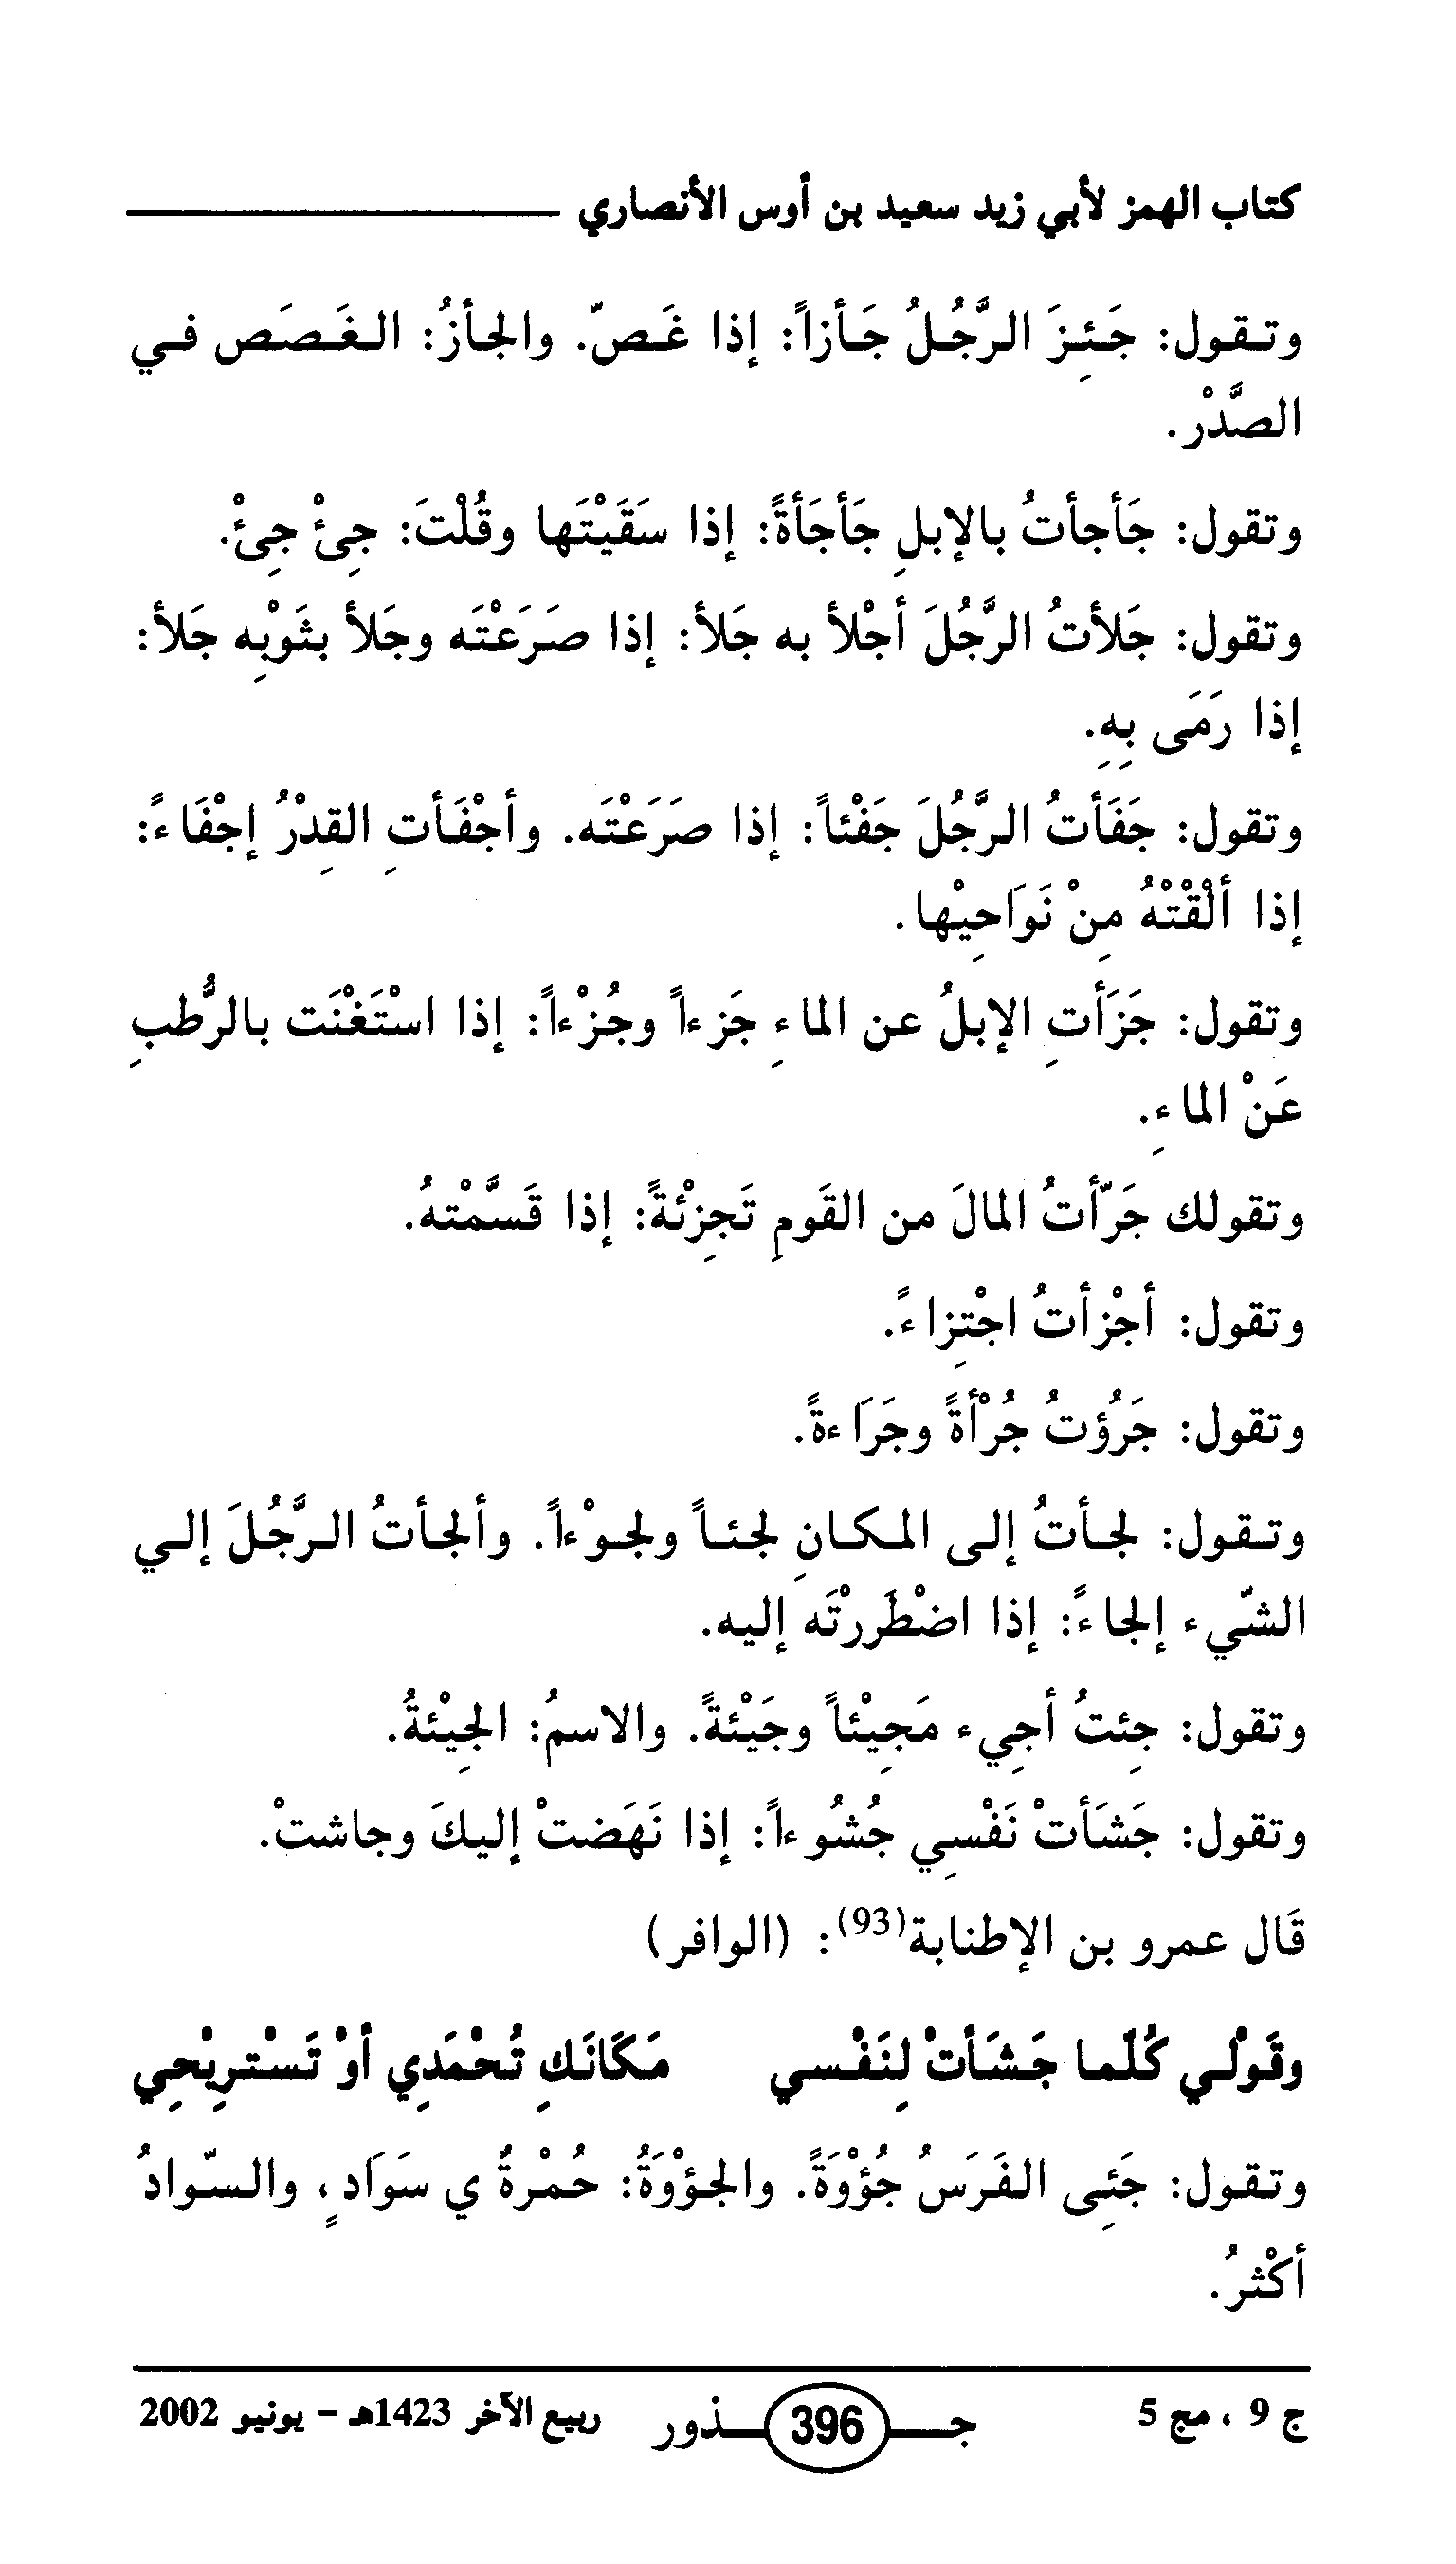 كتاب الهمز لأبي زيد سعيد بن أوس الأنصاري
وتقول: جَـئِـزَ الرَّجُلُ جَـأزاً: إذا غَـصّ. والجأزُ: الـغَـصَـص فـي
الصَّدْر.
وتقول: جَأجأتُ بالإبلِ جَأجَأةً: إذا سَقَيْتَها وقُلْتَ: جِئْ جِئْ.
وتقول: جَلأتُ الرَّجُلَ أجْلأ به جَلأ: إذا صَرَعْتَه وجَلأ بثَوْبِه جَلأ:
إذا رَمَى بِهِ.
وتقول: جَفَأتُ الرَّجُلَ جَفْئاً: إذا صَرَعْتَه. وأجْفَأتِ القِدْرُ إجْفَاءً:
إذا ألْقْتْهُ مِنْ نَوَاحِيْها.
وتقول: جَزَأتِ الإبلُ عن الماءِ جَزءاً وجُزْءاً: إذا اسْتَغْنَت بالرُّطبِ
عَنْ الماءِ.
وتقولك جَرّأتُ المالَ من القَومِ تَجزِئْةً: إذا قَسَّمْتهُ.
وتقول: أجْزأتُ اجْتِزاءً.
وتقول: جَرُؤتُ جُرْأةً وجَرَاءةً.
وتـقـول: لجـأتُ إلى المـكـانِ لجئـاً ولجـوْءاً. وألجأتُ الـرَّجُلَ إلـي
الشّيء إلجاءً: إذا اضْطَررْتَه إليه.
وتقول: جِئتُ أجِيء مَجِيْئاً وجَيْئةً. والاسمُ: الجِيْئةُ.
وتقول: جَشَأتْ نَفْسِي جُشُوءاً: إذا نَهَضتْ إليكَ وجاشتْ.
قَال عمرو بن الإطنابة(93): (الوافر)
وقَولْـي كُلّمـا جَـشـأتْ لِنَفْـسـي مَـكَانَـكِ تُـحْـمَـدِي أوْ تَـسْـتـرِيْـحِي
وتـقـول: جَئِى الفَرَسُ جُؤْوَةً. والجـؤْوَةُ: حُـمْـرةٌ ي سَوَادٍ، والـسّوادُ
أكْثرُ.
ج 9 ، مج 5 جـــذور 396 ربيع الآخر 1423هـ - يونيو 2002